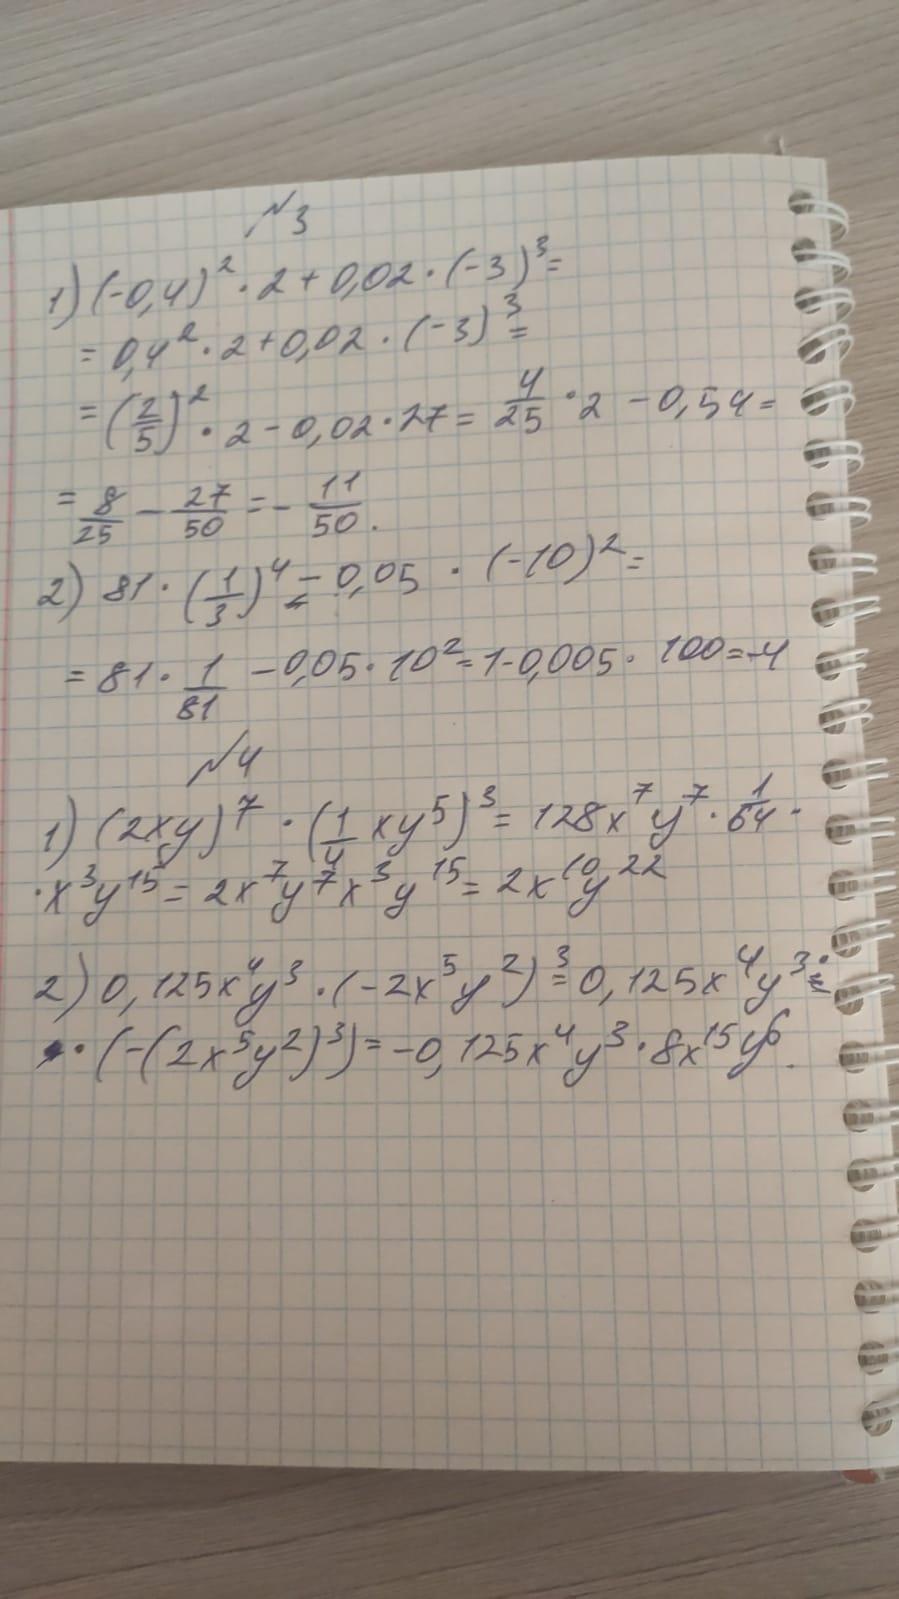 №3
1) (-0,4)² · 2 + 0,02 · (-3)³ =
= 0,4² · 2 + 0,02 · (-3)³ =
= (2/5)² · 2 - 0,02 · 27 = 4/25 · 2 - 0,54 =
= 8/25 - 27/50 = - 11/50 .
2) 81 · (1/3)⁴ - 0,05 · (-10)² =
= 81 · 1/81 - 0,05 · 10² = 1 - 0,005 · 100 = -4
№4
1) (2xy)⁷ · (1/4 xy⁵)³ = 128x⁷y⁷ · 1/64 ·
· x³y¹⁵ = 2x⁷y⁷x³y¹⁵ = 2x¹⁰y²²
2) 0,125x⁴y³ · (-2x⁵y²)³ = 0,125x⁴y³ ·
· (-(2x⁵y²)³) = -0,125x⁴y³ · 8x¹⁵y⁶.